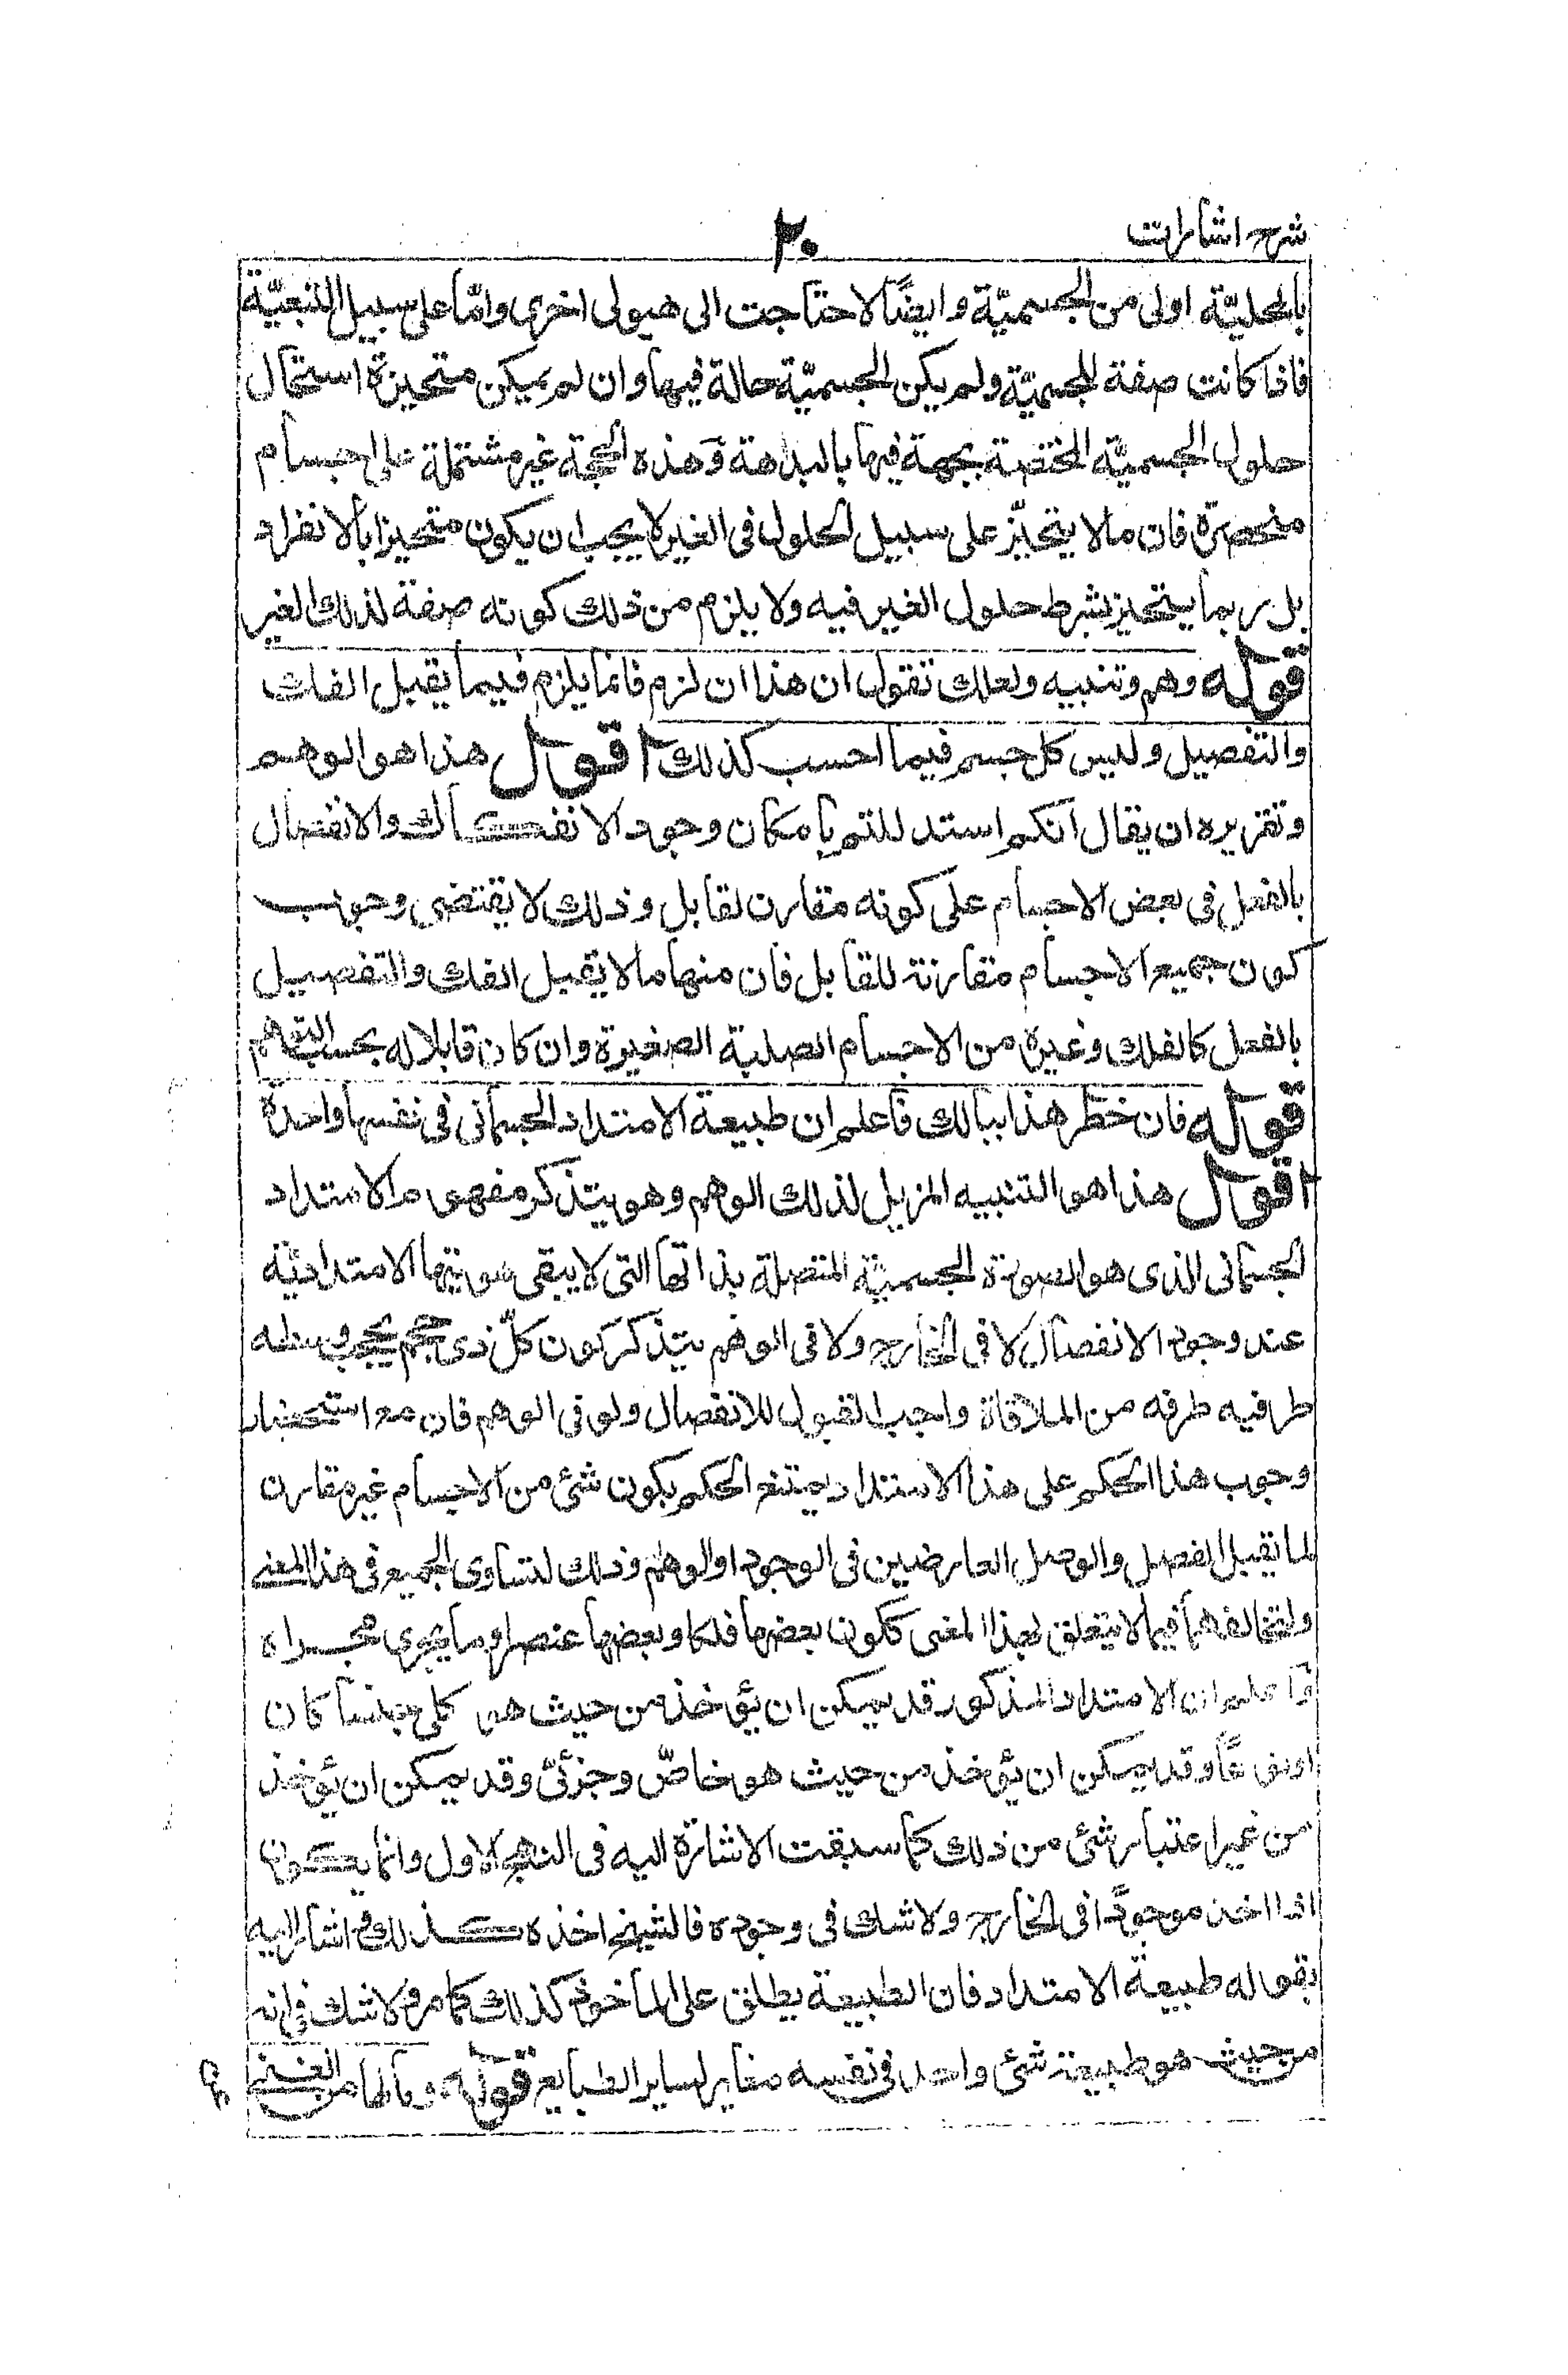 شرح اشارات
۲۰
بالمحليّة اولى من الجسميّة وايضًا لاحتاجت الى هيولى اخرى وامّا على سبيل التبعيّة
فاذا كانت صفة للجسميّة ولم يكن الجسميّة حالة فيها وان لم يكن متحيزة استحال
حلول الجسميّة المختصة بجهة فيها بالبداهة وهذه الحجة غير مشتملة على اجسام
منحصرة فان ما لا يتحيّز على سبيل الحلول فى الغير لا يجب ان يكون متحيزا بالانفراد
بل ربما يتحيز بشرط حلول الغير فيه ولا يلزم من ذلك كونه صفة لذلك الغير
قوله وهم وتنبيه ولعلك تقول ان هذا ان لزم فانما يلزم فيما يقبل الفك
والتفصيل وليس كل جسم فيما احسب كذلك اقول هذا هو الوهم
وتقريره ان يقال انكم استدللتم بامكان وجود الانفكاك والانفصال
بالفعل فى بعض الاجسام على كونه مقارن لقابل وذلك لا يقتضى وجوب
كون جميع الاجسام مقارنة للقابل فان منها ما لا يقبل الفك والتفصيل
بالفعل كالفلك وغيره من الاجسام الصلبة الصغيرة وان كان قابلا له بحسب التوهم
قوله فان خطر هذا ببالك فاعلم ان طبيعة الامتداد الجسمانى فى نفسها واحدة
اقول هذا هو التنبيه المزيل لذلك الوهم وهو بتذكر مفهوم الامتداد
الجسمانى الذى هو الصورة الجسميّة المتصلة بذاتها التى لا يبقى هويتها الامتداديّة
عند وجود الانفصال لا فى الخارج ولا فى الوهم بتذكر كون كلّ ذى حجم يحجب وسطه
طرفيه طرفه من الملاقاة واجب القبول للانفصال ولو فى الوهم فان مع استحضار
وجوب هذا الحكم على هذا الامتداد يمتنع الحكم بكون شئ من الاجسام غير مقارن
لما يقبل الفصل والوصل العارضين فى الوجود او الوهم وذلك لتساوى الجميع فى هذا المعنى
ولتخالفهما فيما لا يتعلق بهذا المعنى ككون بعضها فلكا وبعضها عنصرا وما يجرى مجراه
واعلم ان الامتداد المذكور قد يمكن ان يؤخذ من حيث هو كلى جنسا كان
او نوعًا وقد يمكن ان يؤخذ من حيث هو خاصّ وجزئىّ وقد يمكن ان يؤخذ
من غير اعتبار شئ من ذلك كما سبقت الاشارة اليه فى النهج الاول وانما يكون
اذا اخذ موجودًا فى الخارج ولا شك فى وجوده فالشيخ اخذه كذلك واشار اليه
بقوله طبيعة الامتداد فان الطبيعة يطلق على الماخوذ كذلك كما مر ولا شك فى انه
من حيث هو طبيعة شئ واحد فى نفسه مغاير لساير الطبايع قوله ومالها من الغنى